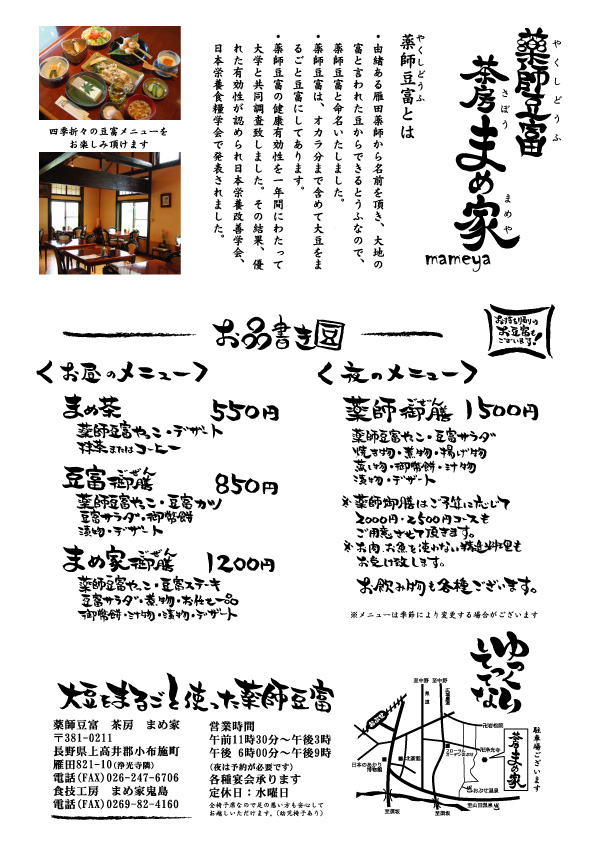 薬師豆富
やくしどうふ
茶房 まめ家
さぼう
まめや
mameya
やくしどうふ
薬師豆富とは
・由緒ある雁田薬師から名前を頂き、大地の
富と言われた豆からできるとうふなので、
薬師豆富と命名いたしました。
・薬師豆富は、オカラ分まで含めて大豆をま
るごと豆富にしてあります。
・薬師豆富の健康有効性を一年間にわたって
大学と共同調査致しました。その結果、優
れた有効性が認められ日本栄養改善学会、
日本栄養食糧学会で発表されました。
四季折々の豆富メニューを
お楽しみ頂けます
お品書き豆
お持ち帰りの
お豆富も
ございます!
<お昼のメニュー>
まめ茶 550円
薬師豆富やっこ・デザート
抹茶またはコーヒー
豆富御膳 850円
ごぜん
薬師豆富やっこ・豆富カツ
豆富サラダ・御幣餅
漬物・デザート
まめ家御膳 1200円
ごぜん
薬師豆富やっこ・豆富ステーキ
豆富サラダ・煮物・お任せ一品
御幣餅・汁物・漬物・デザート
<夜のメニュー>
薬師御膳 1500円
ごぜん
薬師豆富やっこ・豆富サラダ
焼き物・煮物・揚げ物
蒸し物・御幣餅・汁物
漬物・デザート
※薬師御膳はご予算に応じて
2000円・2500円コースも
ご用意させて頂きます。
※お肉、お魚を使わない精進料理も
お受け致します。
お飲み物も各種ございます。
※メニューは季節により変更する場合がございます
大豆をまるごと使った薬師豆富
薬師豆富 茶房 まめ家
〒381-0211
長野県上高井郡小布施町
雁田821-10(浄光寺隣)
電話(FAX)026-247-6706
食技工房 まめ家鬼島
電話(FAX)0269-82-4160
営業時間
午前11時30分〜午後3時
午後 6時00分〜午後9時
(夜は予約が必要です)
各種宴会承ります
定休日:水曜日
全椅子席なので足の悪い方も安心して
お越しいただけます。(幼児椅子あり)
ゆっくり
してってな
至中野
至中野
卍岩松院
卍浄光寺
フローラル
ガーデンおぶせ
北斎館
日本のあかり
博物館
おぶせ温泉
至須坂
至須坂
至山田温泉
茶房 まめ家
駐車場ございます